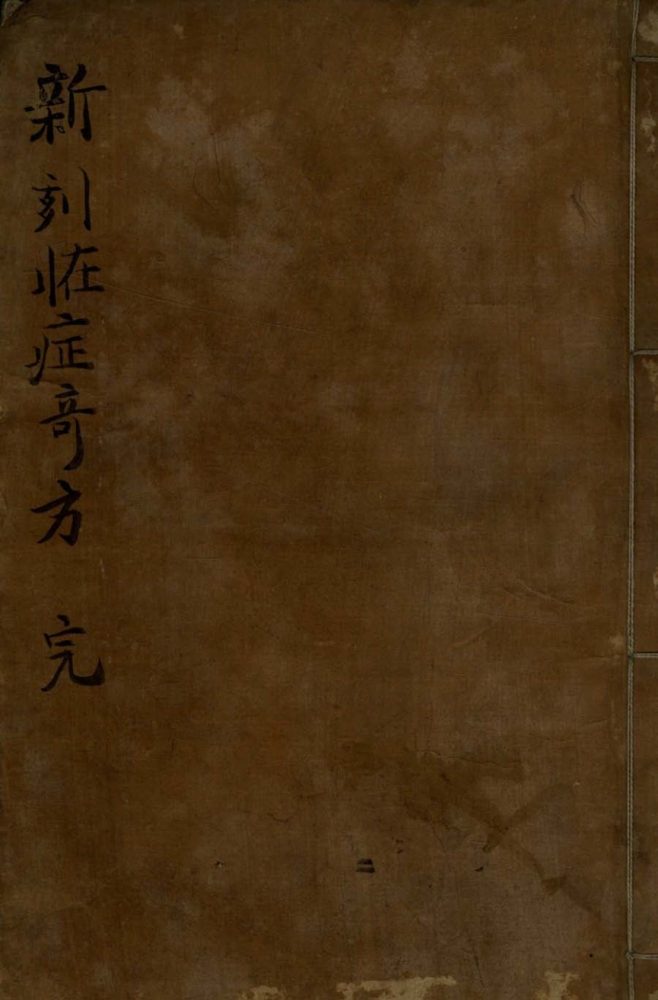 新刻临症奇方 完